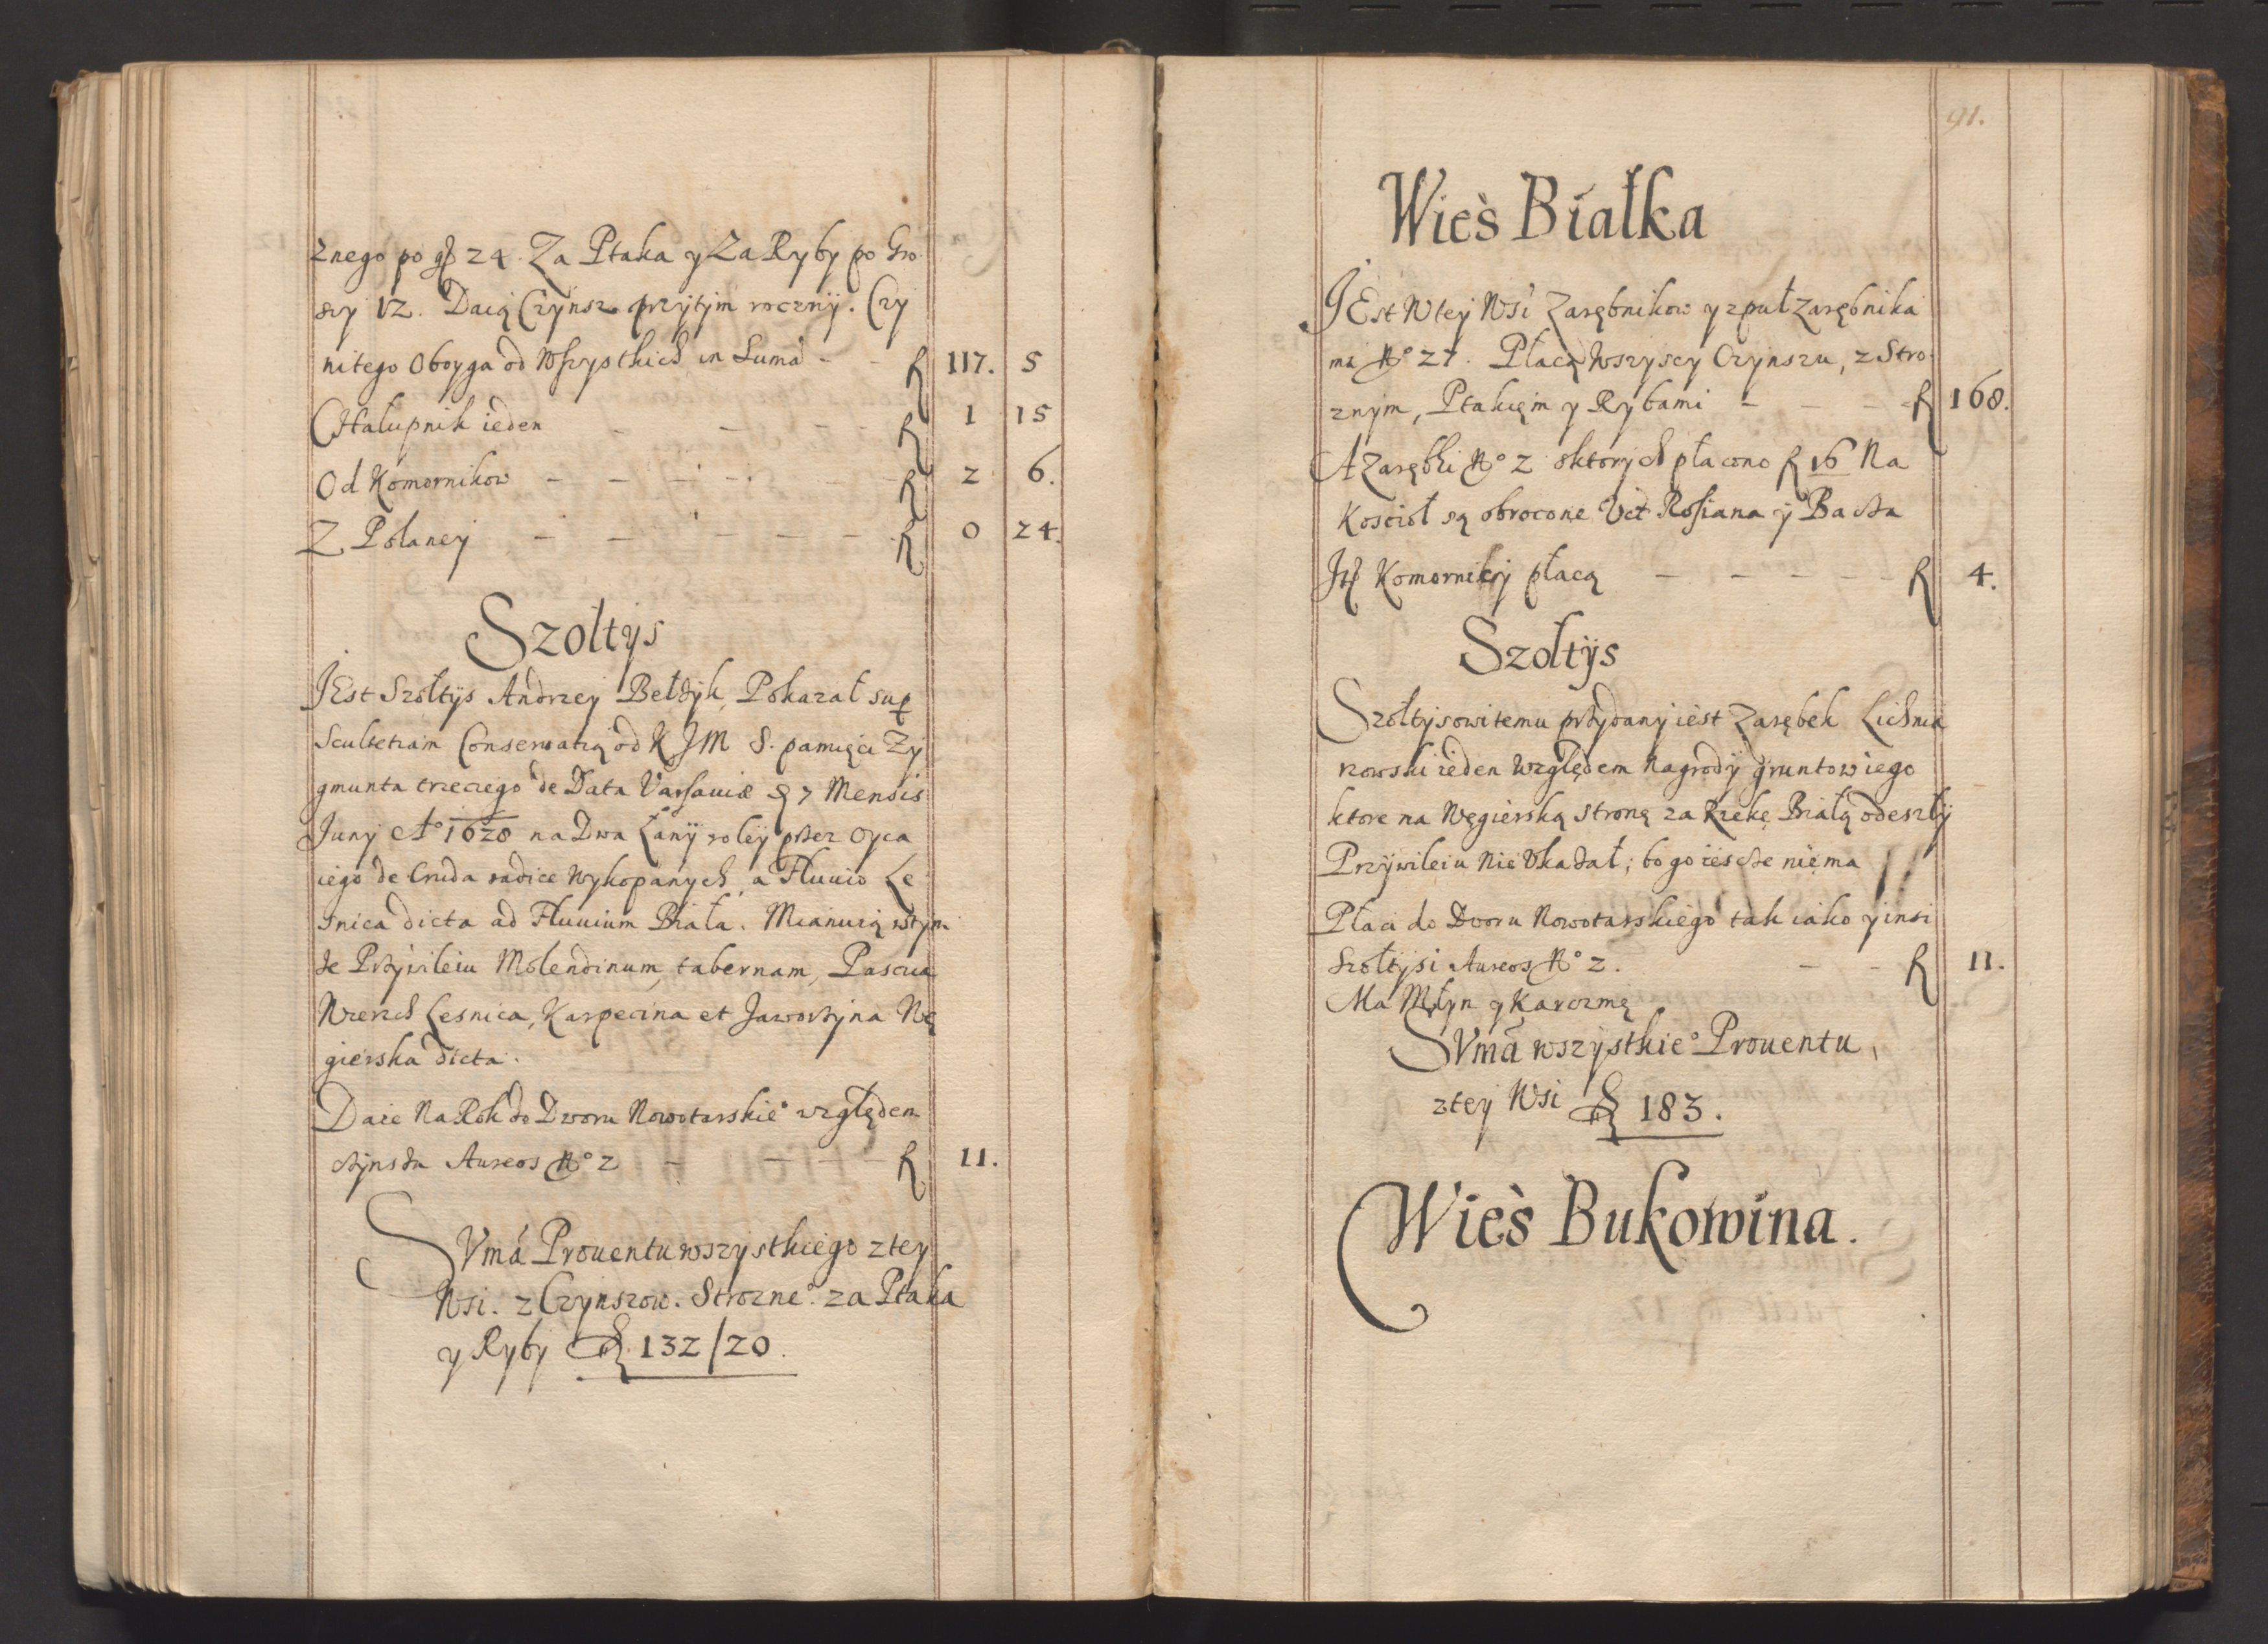 znego po gr 24. Za Ptaka y Za Ryby po Gro
szy 12. Daią Czynsz przytym roczny. Czy
ni tego Oboyga od Wszystkich in Suma - - f 117. 5
CHałupnik ieden - - - - f 1 15
Od Komornikow - - - - - f 2 6.
Z Polaney - - - - - - f 0 24.
Szołtys
JEst Szołtys Andrzey Bełdyk, Pokazał sup
Scultetiam Conservatią od K JM S. pamięci Zy
gmunta trzeciego de Data Varsauiæ 7 Mensis
Juny Ao 1628 na Dwa Łany roley przez Oyca
iego de Cruda radice Wykopanych, a Fluuio Le
snica dicta ad Fluuium Biała. Mianuią w tym
że Przywileiu Molendinum, tabernam, Pascua
Wierzch Lesnica, Karpecina et Jaworzyna Wę
gierska dicta.
Daie Na Rok do Dworu Nowotarskieo względem
czynszu Aureos No 2 - - - - f 11.
SVmá Prouentu wszystkiego z tey
Wsi. z Czynszow. Strozneo. za Ptaka
y Ryby f 132/20.
91.
Wieś Białka
JEst W tey Wsi Zarębnikow y z puł Zarębnika
mi No 27. Płacą Wszyscy Czynszu, z Stro
znym, Ptakięm y Rybami - - - - f 168.
A Zarębki No 2 z ktorych płacono f 16 Na
Koscioł są obrocone Vct Rosiana y Bachta
Jtẽ Komornicy płacą - - - - - f 4.
Szołtys
Szołtysowi temu przydany iest Zarębek Lichma
rzowski ieden Względem Nagrody gruntow iego
ktore na Węgierską Stronę za Rzekę Białą odeszły
Przywileiu Nie Vkazał; bo go ieszcze nię ma
Płaci do Dworu Nowotarskiego tak iako y insi
Szołtysi Aureos No 2. - - f 11.
Ma Młyn y Karczmę
SVmá wszystkieo Prouentu,
z tey Wsi f 183.
Wieś Bukowina.